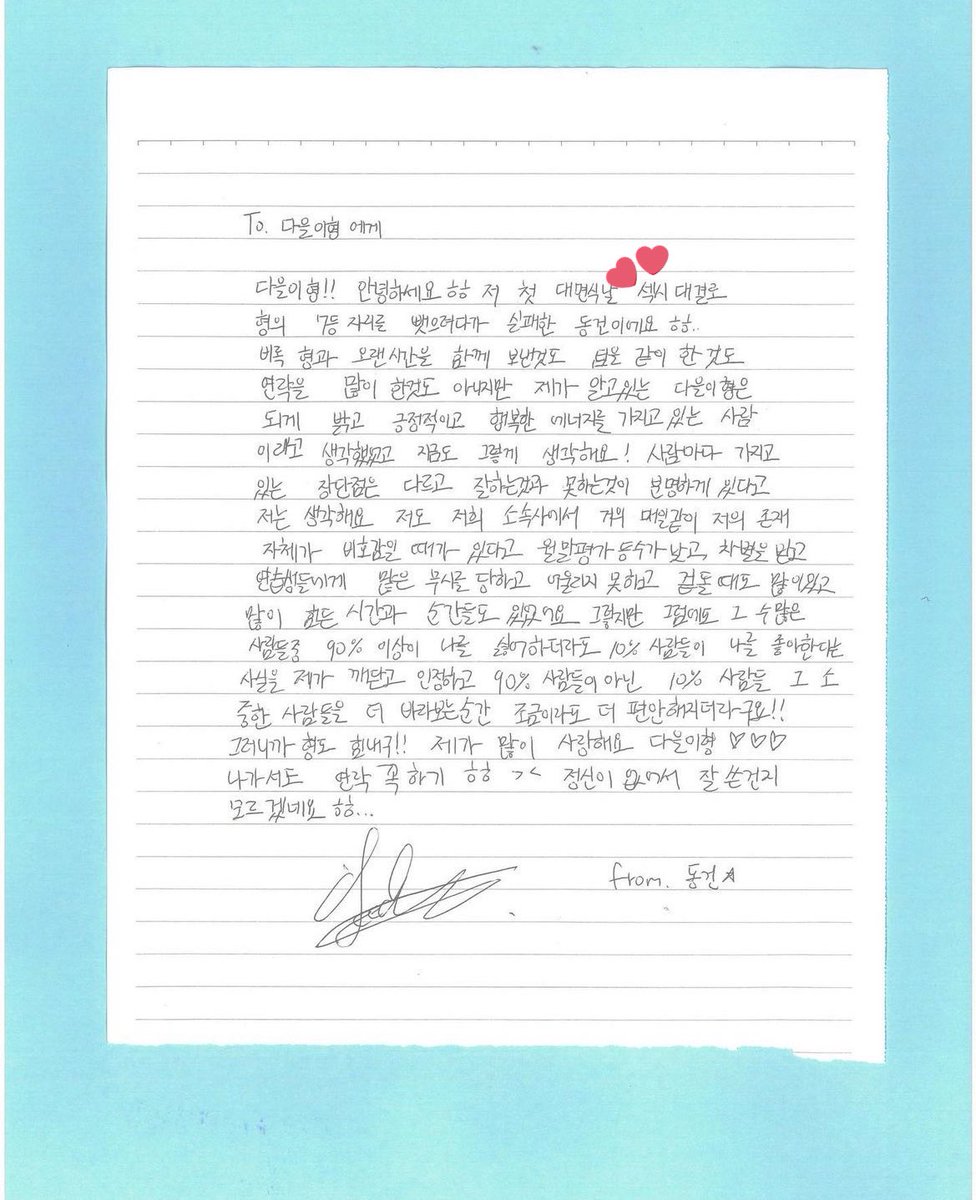 To. 다을이형 에게
다을이형!! 안녕하세요 ㅎㅎ 저 첫 대면식날 섹시 대결로
형의 7등 자리를 뺏으려다가 실패한 동건이에요 ㅎㅎ..
비록 형과 오랜시간을 함께 보낸것도 팀을 같이 한것도
연락을 많이 한것도 아니지만 제가 알고있는 다을이형은
되게 밝고 긍정적이고 행복한 에너지를 가지고 있는 사람
이라고 생각했었고 지금도 그렇게 생각해요! 사람마다 가지고
있는 장단점은 다르고 잘하는것과 못하는것이 분명하게 있다고
저는 생각해요 저도 저희 소속사에서 거의 매일같이 저의 존재
자체가 비호감일 때가 있다고 월말평가 등수가 낮고, 차별을 받고
연습생들에게 많은 무시를 당하고 어울리지 못하고 겉돌때도 많이있고
많이 힘든 시간과 순간들도 있었어요 그렇지만 그럼에도 그 수많은
사람들중 90% 이상이 나를 싫어하더라도 10% 사람들이 나를 좋아한다는
사실을 제가 깨닫고 인정하고 90% 사람들이 아닌 10% 사람들 그 소
중한 사람들을 더 바라보는순간 조금이라도 더 편안해지더라구요!!
그러니까 형도 힘내구!! 제가 많이 사랑해요 다을이형 ♡♡♡
나가서도 연락 꼭 하기 ㅎㅎ >< 정신이 없어서 잘 쓴건지
모르겠네요 ㅎㅎ...
from. 동건☆